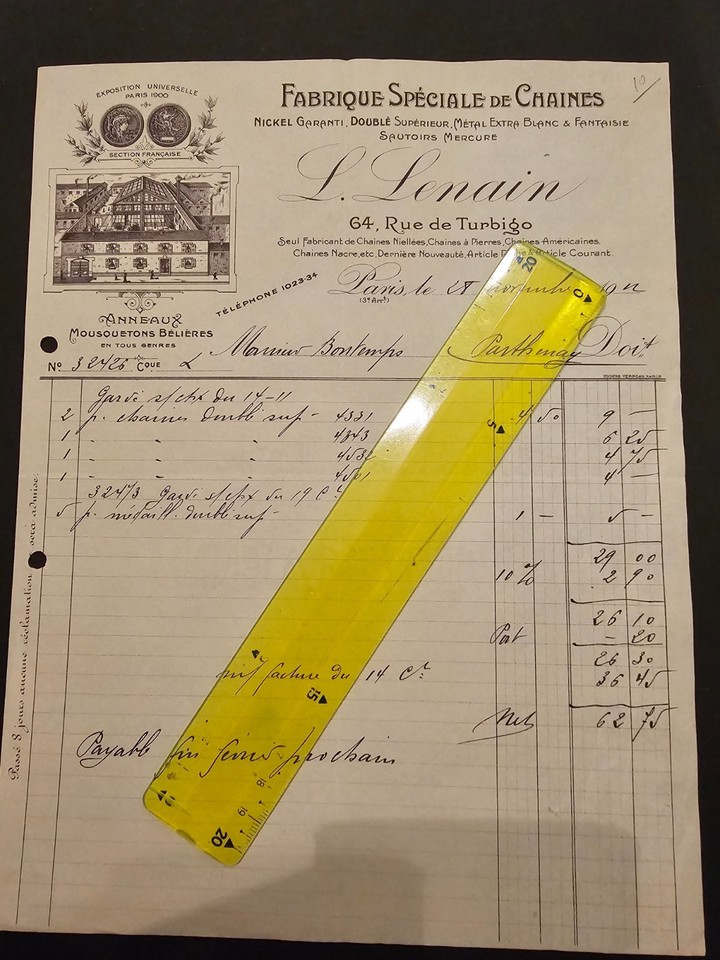 10
EXPOSITION UNIVERSELLE
PARIS 1900
SECTION FRANÇAISE
FABRIQUE SPÉCIALE DE CHAINES
NICKEL GARANTI, DOUBLÉ SUPÉRIEUR, MÉTAL EXTRA BLANC & FANTAISIE
SAUTOIRS MERCURE
L. Lenain
64, Rue de Turbigo
Seul Fabricant de Chaines Niellées, Chaines à Pierres, Chaines Américaines,
Chaines Nacre, etc. Dernière Nouveauté, Article Riche & Article Courant.
TÉLÉPHONE 1023-34
Paris, le 28 novembre 19
(3e Arrt)
ANNEAUX
MOUSQUETONS BÉLIÈRES
EN TOUS GENRES
No 32426 COUE
Monsieur Bontemps Parthenay Doit
Gardé s/chx du 14-11
2 p. chaines doublé sup- 4331 4 50 9 —
1 " " " 4343 6 25
1 " " " 4532 4 75
1 " " " 4501 4 —
32473 Gardé s/chx du 19 Ct
5 p. médaill. doublé sup- 1 — 5 —
29 00
10 % 2 90
26 10
Port — 20
26 30
facture du 14 Ct 36 45
Net 62 75
Payable fin prochain
Passé 8 jours aucune réclamation sera admise.
20
0
5
15
18
19
20